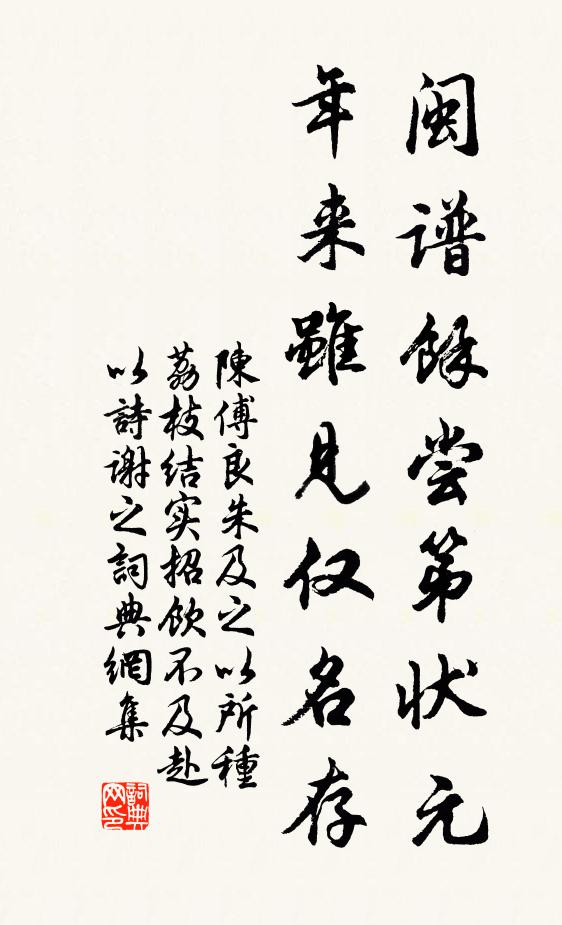 闽谱餘尝第状元
年来雖見仅名存
陳傅良朱及之以所種
荔枝结实招饮不及赴
以詩谢之詞典網集
詞典网印